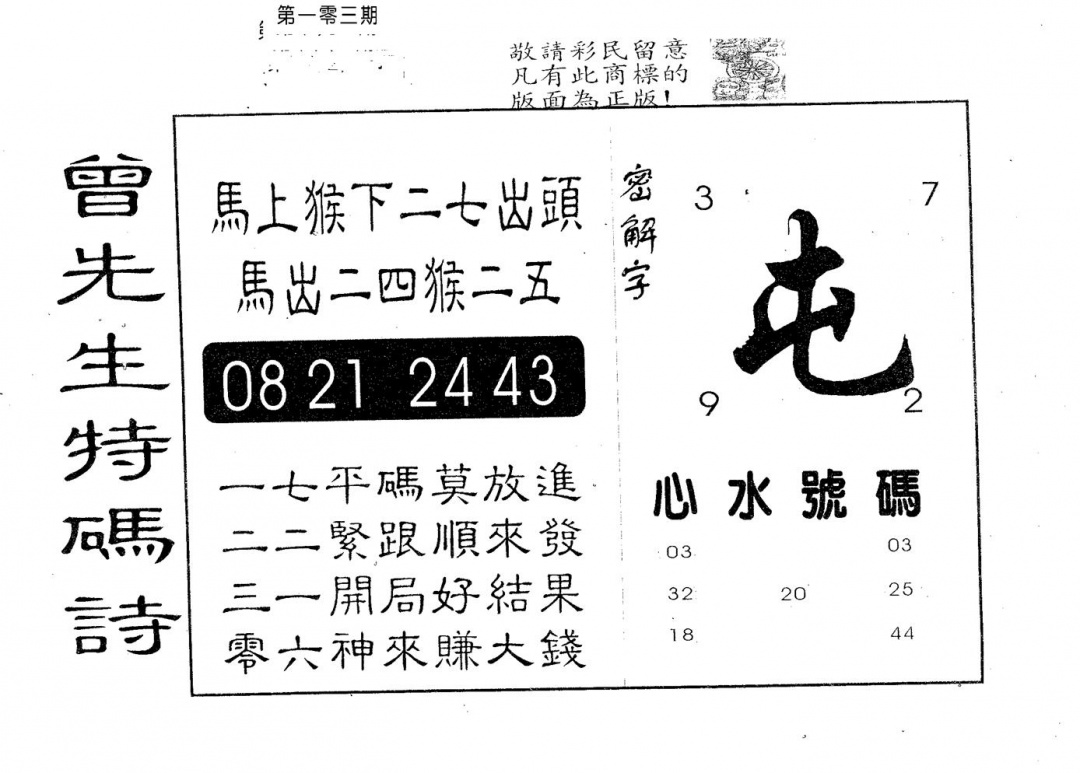 第一零三期
敬請彩民留意
凡有此商標的
版面為正版!
曾先生特碼詩
馬上猴下二七出頭
馬出二四猴二五
08 21 24 43
一七平碼莫放進
二二緊跟順來發
三一開局好結果
零六神來賺大錢
密解字
3 7
屯
9 2
心水號碼
03 03
32 20 25
18 44